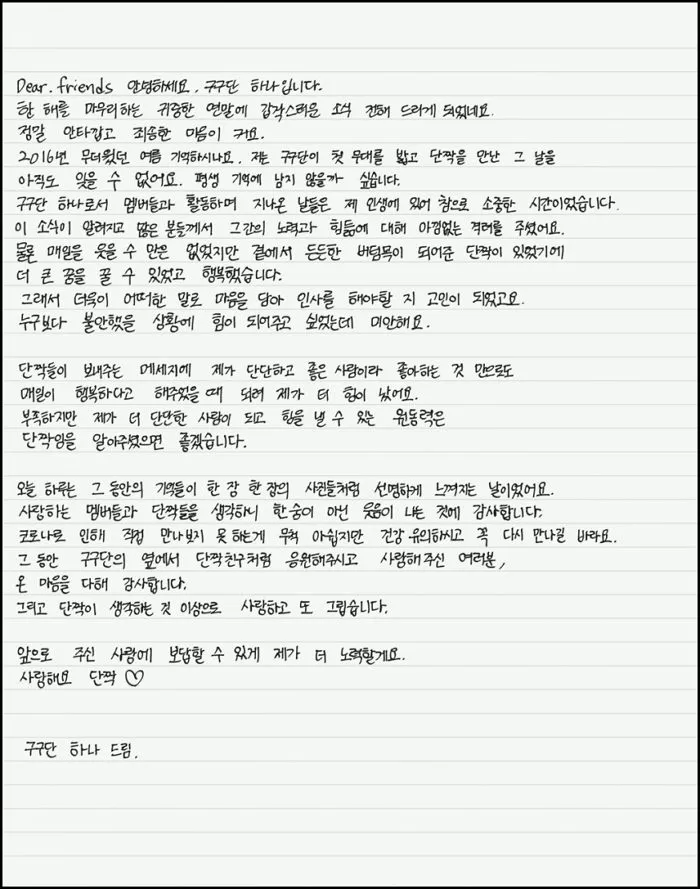 Dear. friends 안녕하세요. 구구단 하나입니다.
한 해를 마무리하는 귀중한 연말에 갑작스러운 소식 전해 드리게 되었네요.
정말 안타깝고 죄송한 마음이 커요.
2016년 무더웠던 여름 기억하시나요. 저는 구구단이 첫 무대를 밟고 단짝을 만난 그 날을
아직도 잊을 수 없어요. 평생 기억에 남지 않을까 싶습니다.
구구단 하나로서 멤버들과 활동하며 지나온 날들은 제 인생에 있어 참으로 소중한 시간이었습니다.
이 소식이 알려지고 많은 분들께서 그간의 노력과 힘듦에 대해 아낌없는 격려를 주셨어요.
물론 매일을 웃을 수 만은 없었지만 곁에서 든든한 버팀목이 되어준 단짝이 있었기에
더 큰 꿈을 꿀 수 있었고 행복했습니다.
그래서 더욱이 어떠한 말로 마음을 담아 인사를 해야할 지 고민이 되었고요.
누구보다 불안했을 상황에 힘이 되어주고 싶었는데 미안해요.
단짝들이 보내주는 메세지에 제가 단단하고 좋은 사람이라 좋아하는 것 만으로도
매일이 행복하다고 해주었을 때 되려 제가 더 힘이 났어요.
부족하지만 제가 더 단단한 사람이 되고 힘을 낼 수 있는 원동력은
단짝임을 알아주셨으면 좋겠습니다.
오늘 하루는 그 동안의 기억들이 한 장 한 장의 사진들처럼 선명하게 느껴지는 날이었어요.
사랑하는 멤버들과 단짝들을 생각하니 한숨이 아닌 웃음이 나는 것에 감사합니다.
코로나로 인해 직접 만나보지 못 하는게 무척 아쉽지만 건강 유의하시고 꼭 다시 만나길 바라요.
그 동안 구구단의 옆에서 단짝친구처럼 응원해주시고 사랑해주신 여러분,
온 마음을 다해 감사합니다.
그리고 단짝이 생각하는 것 이상으로 사랑하고 또 그립습니다.
앞으로 주신 사랑에 보답할 수 있게 제가 더 노력할게요.
사랑해요 단짝 ♡
구구단 하나 드림.